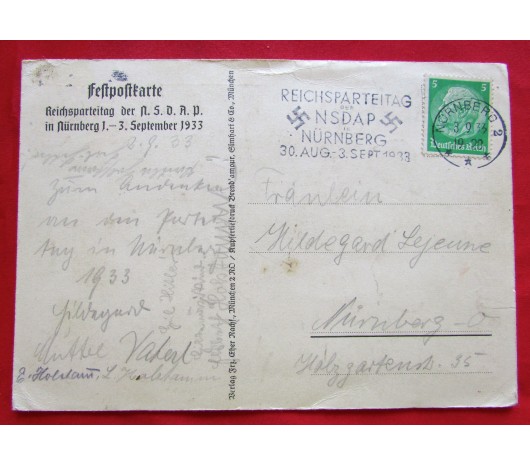 Festpostkarte
Reichsparteitag der N.S.D.A.P.
in Nürnberg 1.–3. September 1933
2.9.33
Zum Andenken
an den Partei
tag in Nürnberg
1933
Hildegard
E. Holstaus, L.
Verlag Frz. Eher Nachf., München 2 NO / Kupfertiefdruck Brend'amour, Simhart & Co., München
REICHSPARTEITAG
DER
NSDAP
IN
NÜRNBERG
30. AUG.-3. SEPT. 1933
5 5
Deutsches Reich
NÜRNBERG 2
Fräulein
Hildegard Lejeune
Nürnberg-O
Holzgartenstr. 35